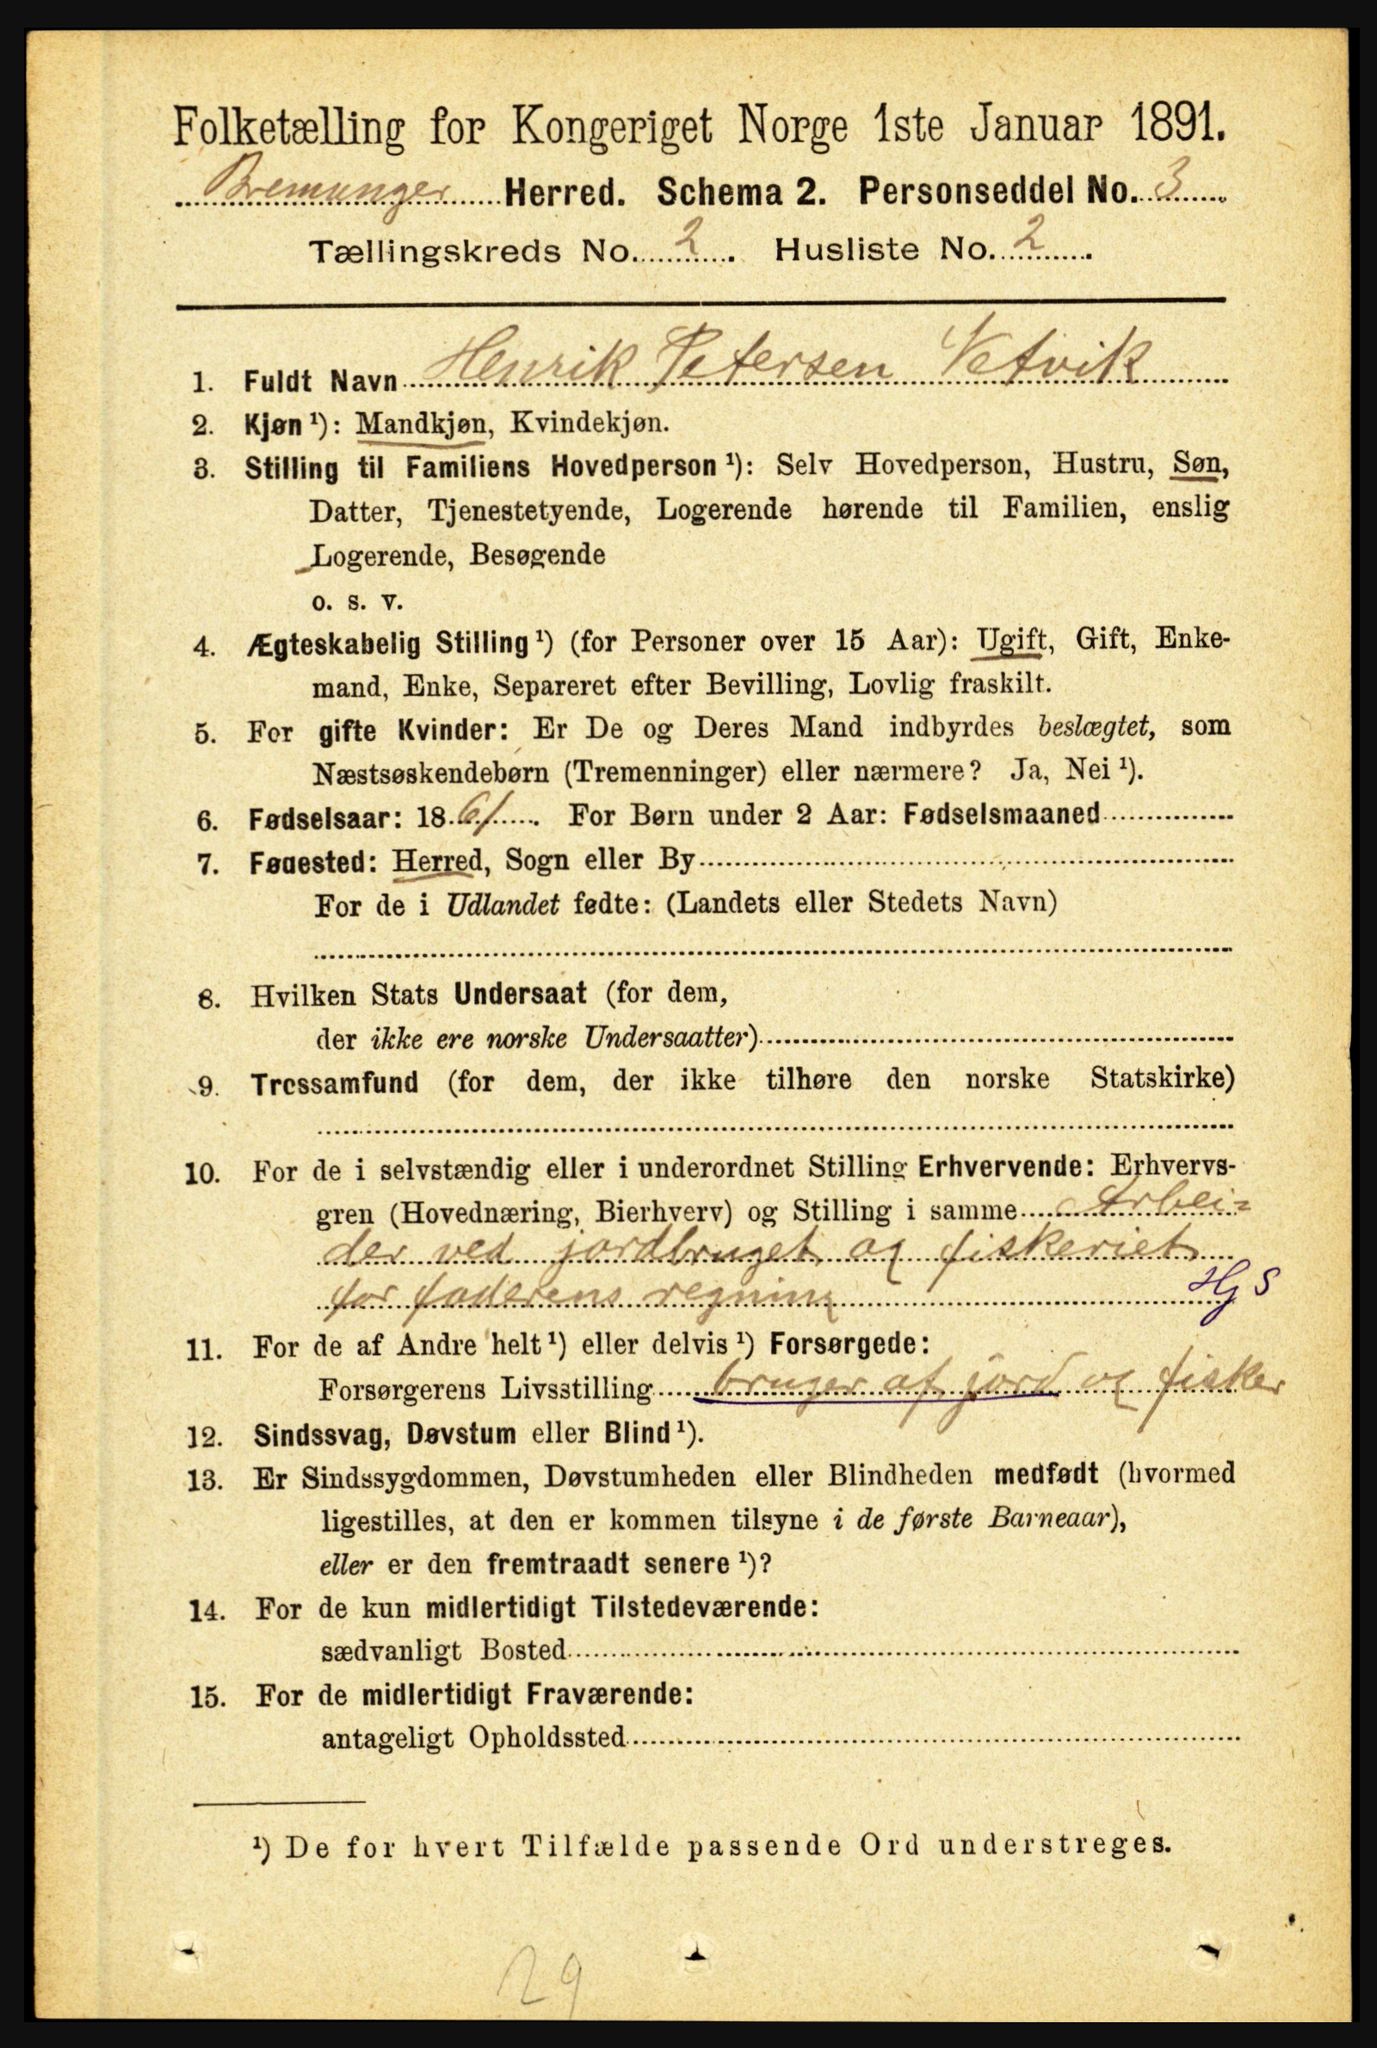 Folketælling for Kongeriget Norge 1ste Januar 1891.
Bremanger Herred. Schema 2. Personseddel No. 3
Tællingskreds No. 2. Husliste No. 2.
1. Fuldt Navn Henrik Petersen Vetvik
2. Kjøn ¹): Mandkjøn, Kvindekjøn.
3. Stilling til Familiens Hovedperson ¹): Selv Hovedperson, Hustru, Søn,
Datter, Tjenestetyende, Logerende hørende til Familien, enslig
Logerende, Besøgende
o. s. v.
4. Ægteskabelig Stilling ¹) (for Personer over 15 Aar): Ugift, Gift, Enke-
mand, Enke, Separeret efter Bevilling, Lovlig fraskilt.
5. For gifte Kvinder: Er De og Deres Mand indbyrdes beslægtet, som
Næstsøskendebørn (Tremenninger) eller nærmere? Ja, Nei ¹).
6. Fødselsaar: 1861. For Børn under 2 Aar: Fødselsmaaned
7. Fødested: Herred, Sogn eller By
For de i Udlandet fødte: (Landets eller Stedets Navn)
8. Hvilken Stats Undersaat (for dem,
der ikke ere norske Undersaatter)
9. Trossamfund (for dem, der ikke tilhøre den norske Statskirke)
10. For de i selvstændig eller i underordnet Stilling Erhvervende: Erhvervs-
gren (Hovednæring, Bierhverv) og Stilling i samme Arbei=
der ved jordbruget og fiskeriet
for faderens regning HjS
11. For de af Andre helt ¹) eller delvis ¹) Forsørgede:
Forsørgerens Livsstilling bruger af jord og fisker
12. Sindssvag, Døvstum eller Blind ¹).
13. Er Sindssygdommen, Døvstumheden eller Blindheden medfødt (hvormed
ligestilles, at den er kommen tilsyne i de første Barneaar),
eller er den fremtraadt senere ¹)?
14. For de kun midlertidigt Tilstedeværende:
sædvanligt Bosted
15. For de midlertidigt Fraværende:
antageligt Opholdssted
¹) De for hvert Tilfælde passende Ord understreges.
29